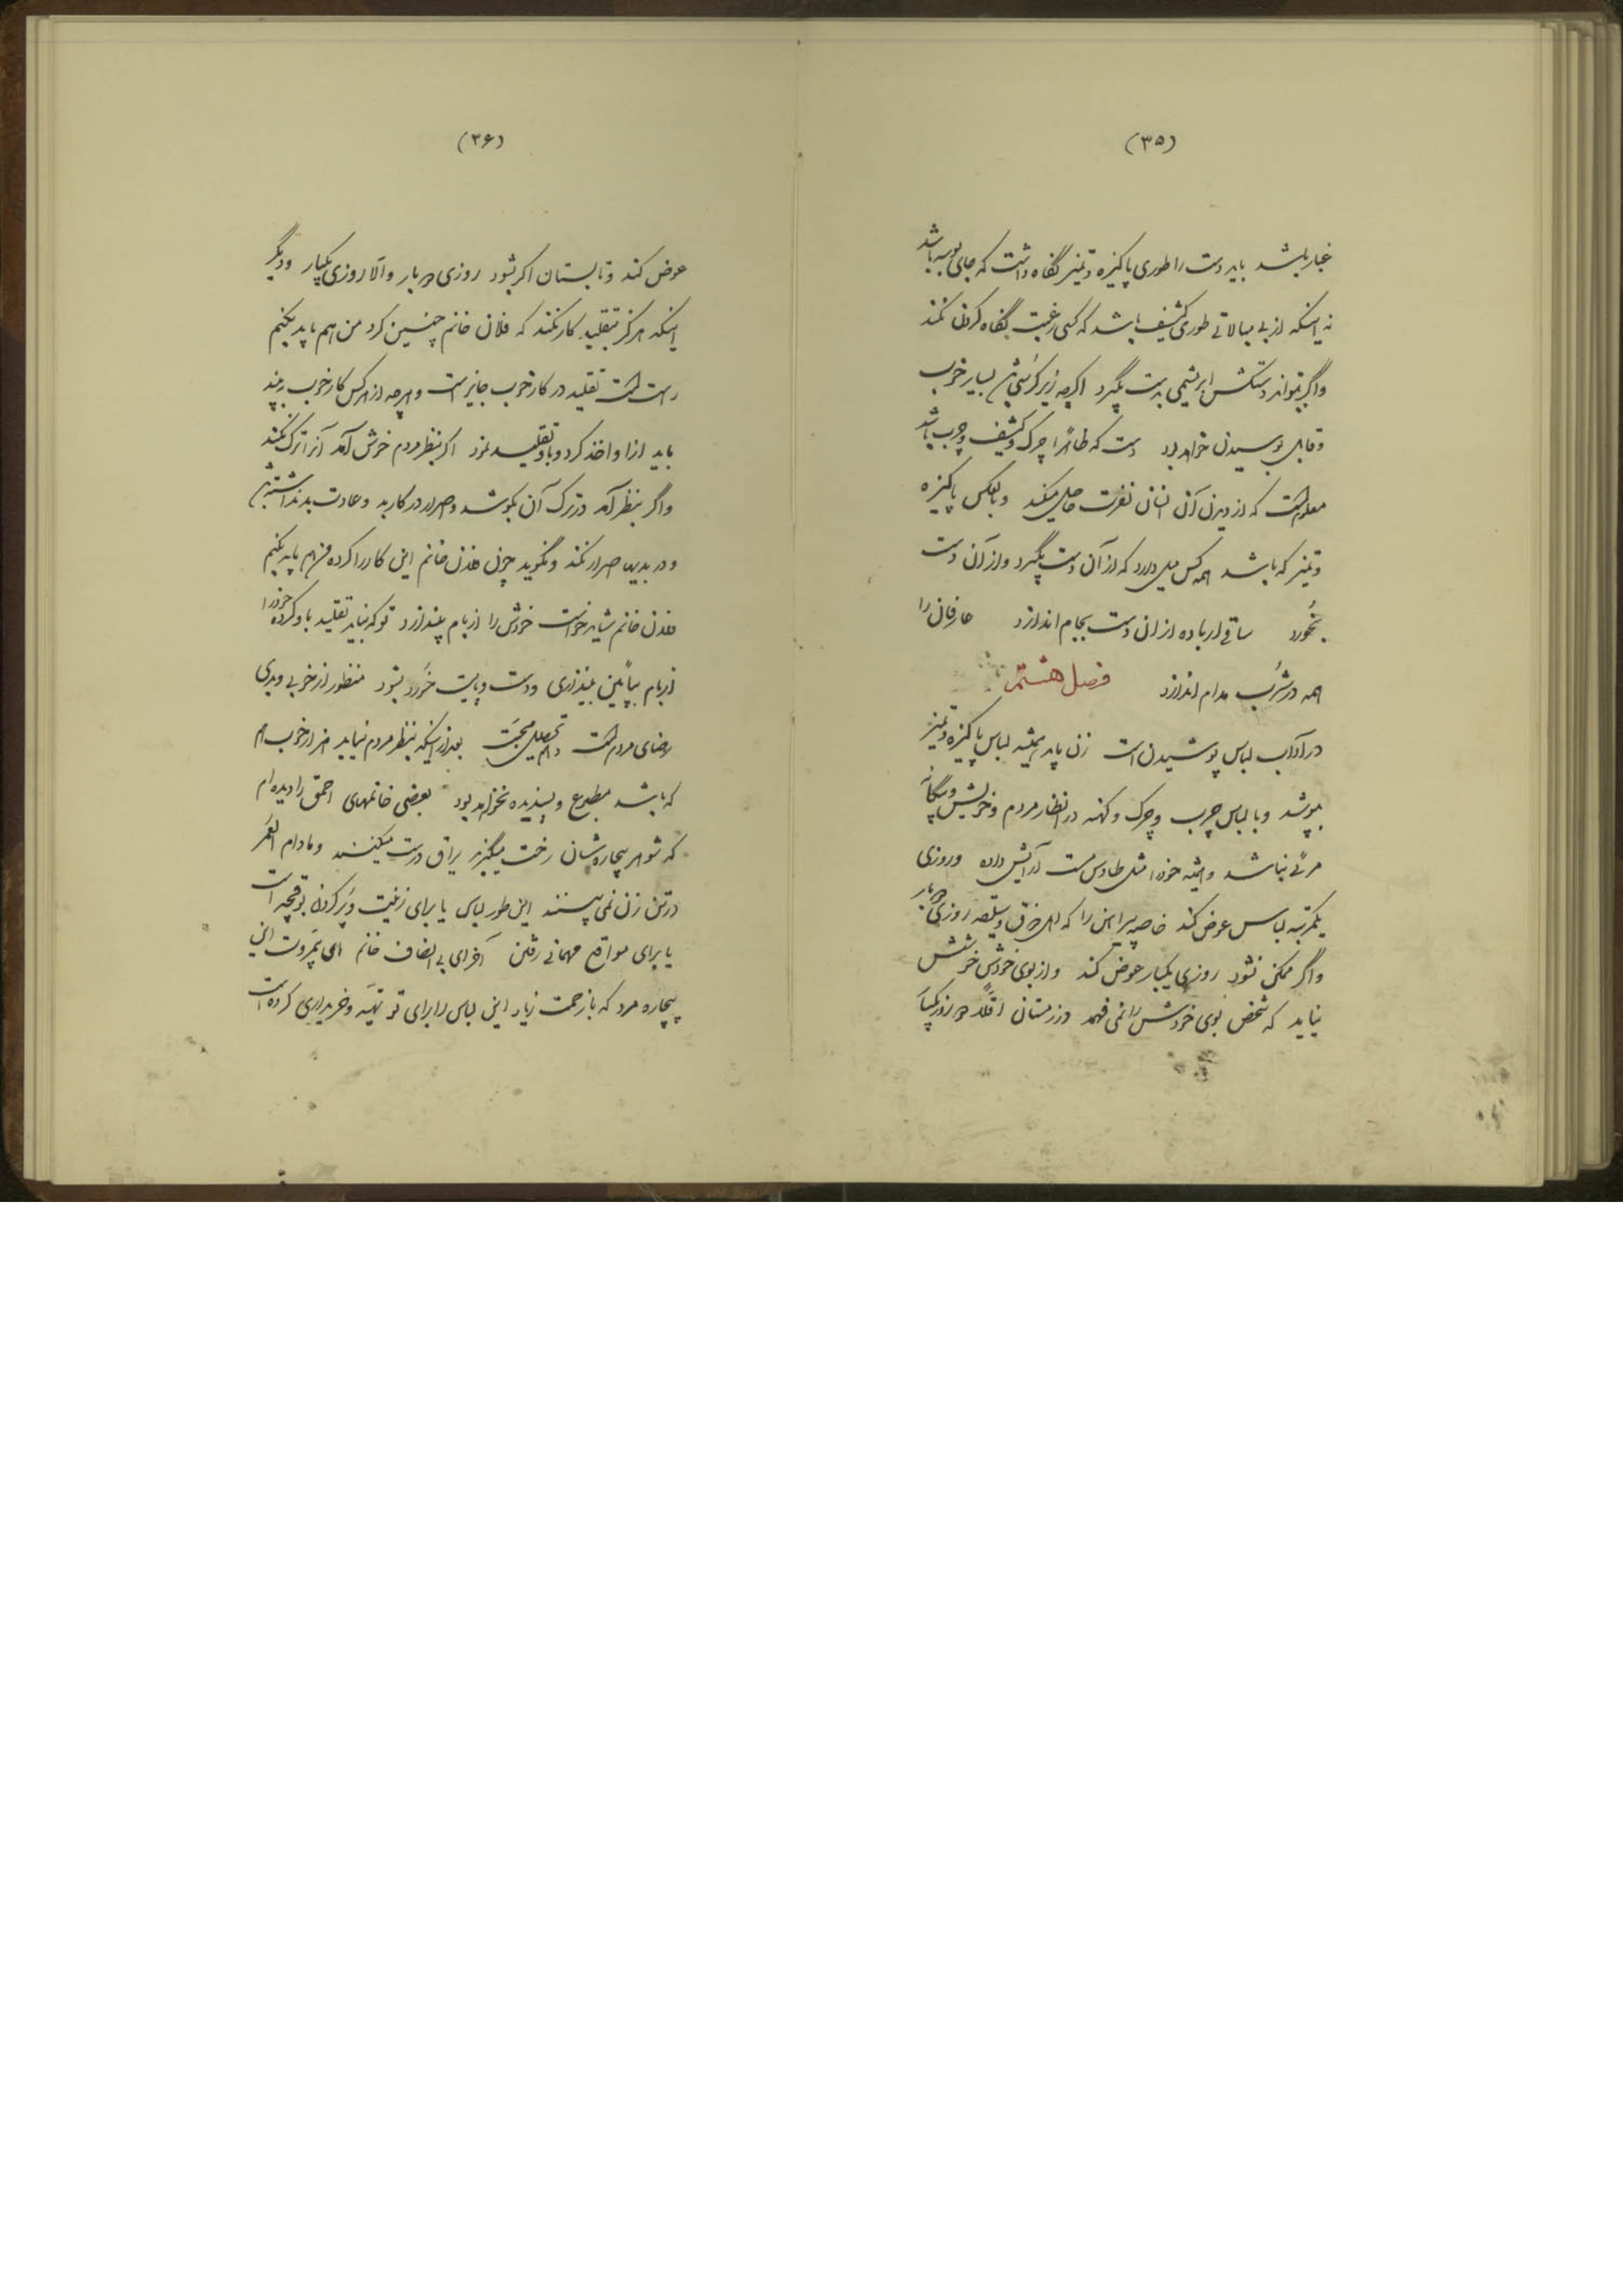 (۳۵)
غبار باشد باید دست را طوری پاکیزه و تمیز نگاه داشت که جای بوسه باشد
نه اینکه از بی مبالاتی طوری کثیف باشد که کسی رغبت نگاه کردن نکند
و اگر بتواند دستکش ابریشمی بدست بگیرد اگرچه زیر کرسی بسیار خوب
و قابل بوسیدن خواهد بود دست که ظاهرا چرک و کثیف و چرب باشد
معلوم است که از دیدن آن انسان نفرت حاصل میکند و بالعکس پاکیزه
و تمیز که باشد همه کس میل دارد که از آن دست بگیرد و از آن دست
بخورد ساقی ار باده از آن دست بجام اندازد عارفان را
همه در شرب مدام اندازد فصل هشتم
در آداب لباس پوشیدن است زن باید همیشه لباس پاکیزه و تمیز
بپوشد و با لباس چرب و چرک و کهنه در انظار مردم و خویش و بیگانه
مرئی نباشد و همیشه خود را مثل طاوس مست آرایش داده و روزی
یکمرتبه لباس عوض کند خاصه پیراهن را که اهل ذوق و سلیقه روزی دو بار
و اگر ممکن نشود روزی یکبار عوض کند و از بوی خودش خوشش
نیاید که شخص بوی خودش را نمی فهمد در زمستان اقلا دو روز یکبار
(۳۶)
عوض کند و تابستان اگر بشود روزی دو بار و الا روزی یکبار و دیگر
اینکه هرگز بتقلید کار نکنند که فلان خانم چنین کرد من هم باید بکنم
راست است تقلید در کار خوب جایز است و هرچه از هر کس کار خوب ببیند
باید از او اخذ کرد و با و تقلید نمود اگر بنظر مردم خوش آمد آنرا ترک نکند
و اگر بنظر آمد در ترک آن بکوشد و اصرار در کار بد و عادت بد نداشته
و در بدیها اصرار نکند و نگوید چون فلان خانم این کار را کرده من هم باید بکنم
فلان خانم شاید خواست خودش را از بام بیندازد تو که نباید تقلید باو کرده خود را
از بام بپائین بیندازی و دست و پایت خورد بشود منظور از خوبی و بدی
رضای مردم است و تحصیل محبت بعد از اینکه بنظر مردم نیاید هر قدر خوب هم
که باشد مطبوع و پسندیده نخواهد بود بعضی خانمهای احمق را دیده ام
که شوهر بیچاره شان رخت میگیرند یراق درست میکنند و مادام العمر
در تن زن نمی بینند این طور لباس یا برای زینت و پر کردن بوقچه است
یا برای مواقع مهمانی رفتن آخر ای بی انصاف خانم ای بیمروت این
بیچاره مرد که با زحمت زیاد این لباس را برای تو تهیه و خریداری کرده است